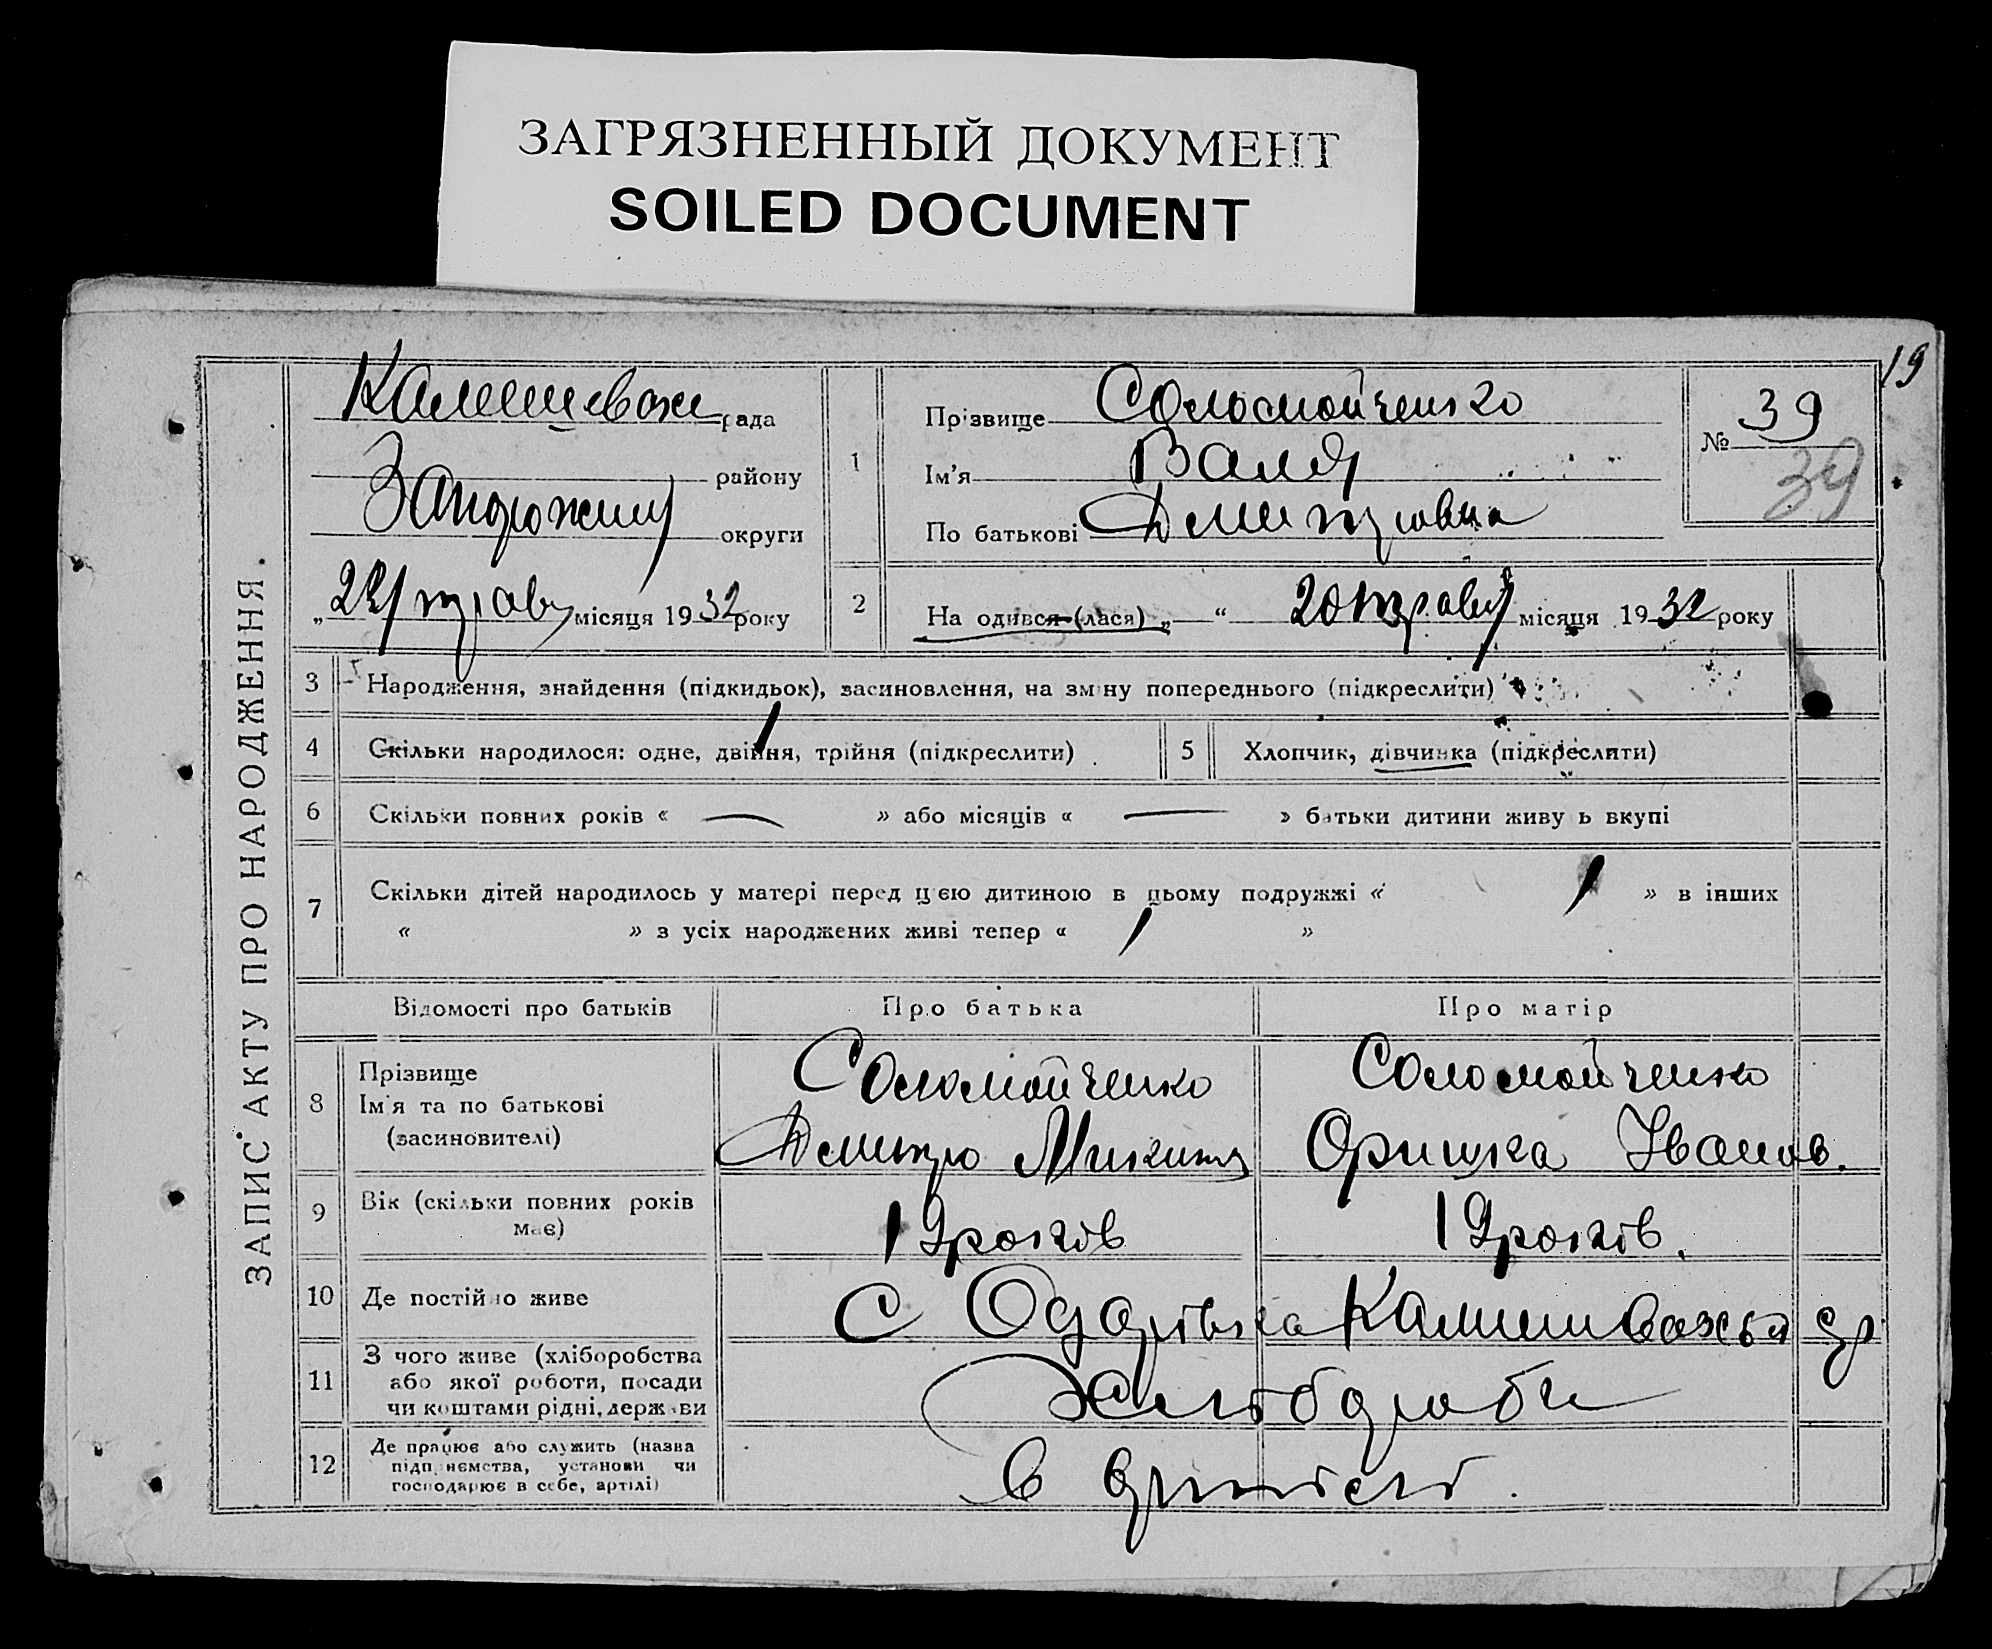 ЗАГРЯЗНЕННЫЙ ДОКУМЕНТ
SOILED DOCUMENT
19
ЗАПИС АКТУ ПРО НАРОДЖЕННЯ.
рада
району
округи
місяця 1932 року
1
Прізвище Соломойченко
Ім'я Валя
По батькові Дмитровна
№ 39
39
2
На одився (лася) „ “ 20 травня місяця 1932 року
3 Народження, знайдення (підкидьок), засиновлення, на зміну попереднього (підкреслити)
4 Скільки народилося: одне, двійня, трійня (підкреслити)
5 Хлопчик, дівчинка (підкреслити)
6 Скільки повних років « — » або місяців « — » батьки дитини живу ь вкупі
7 Скільки дітей народилось у матері перед цією дитиною в цьому подружжі « 1 » в інших
« » з усіх народжених живі тепер « 1 »
Відомості про батьків Про батька Про матір
8 Прізвище
Ім'я та по батькові
(засиновителі)
Соломойченко
Дмитро Микит
Соломойченко
Оришка Іванов.
9 Вік (скільки повних років
має)
19 років
19 років.
10 Де постійно живе
с
11 З чого живе (хліборобства
або якої роботи, посади
чи коштами рідні, держави
12 Де працює або служить (назва
підприємства, установи чи
господарює в себе, артілі)
в артілі.